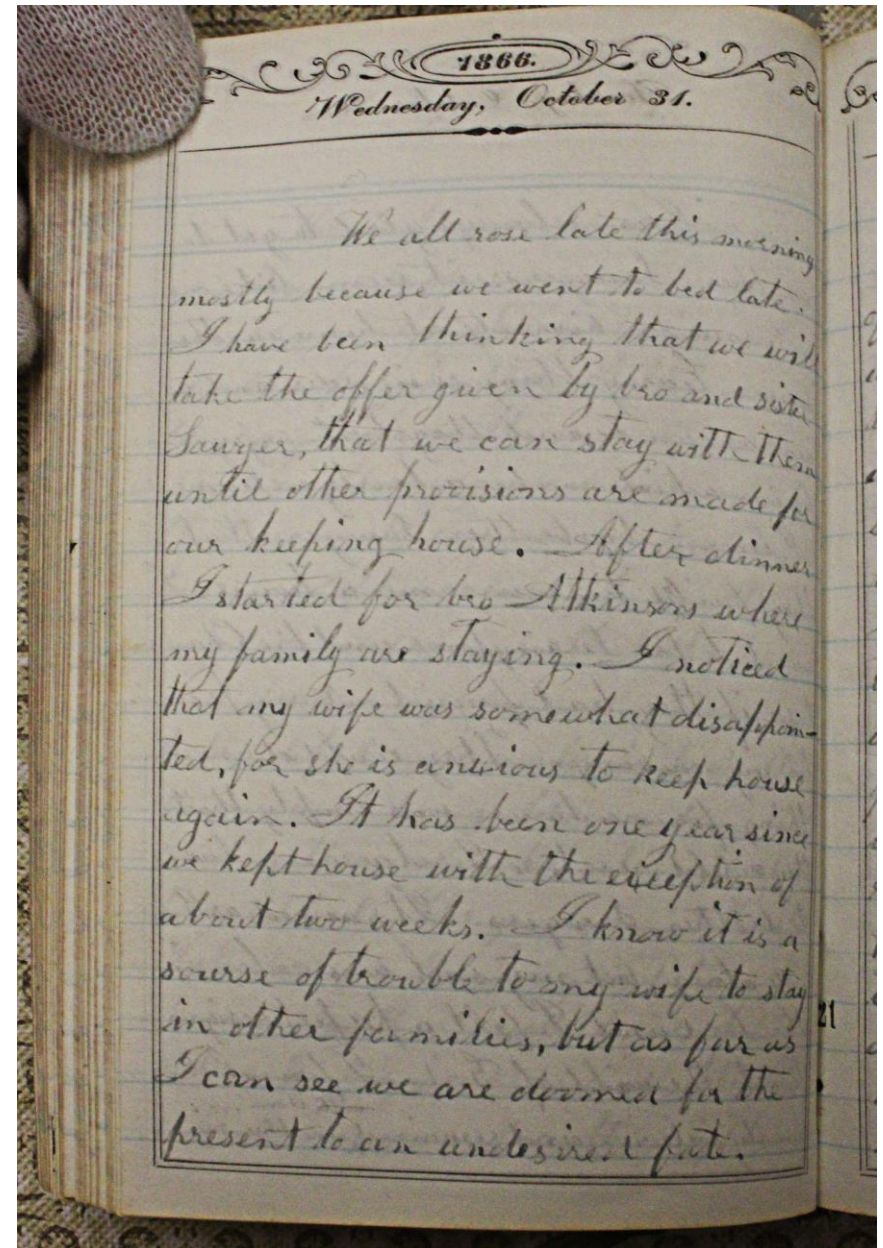 1866.
Wednesday, October 31.
We all rose late this morning
mostly because we went to bed late.
I have been thinking that we will
take the offer given by bro and sister
Sawyer, that we can stay with them
until other provisions are made for
our keeping house. After dinner
I started for bro Atkinsons where
my family are staying. I noticed
that my wife was somewhat disappoin-
ted, for she is anxious to keep house
again. It has been one year since
we kept house with the exception of
about two weeks. I know it is a
sourse of trouble to my wife to stay
in other families, but as far as
I can see we are doomed for the
present to an undesired fate.
21